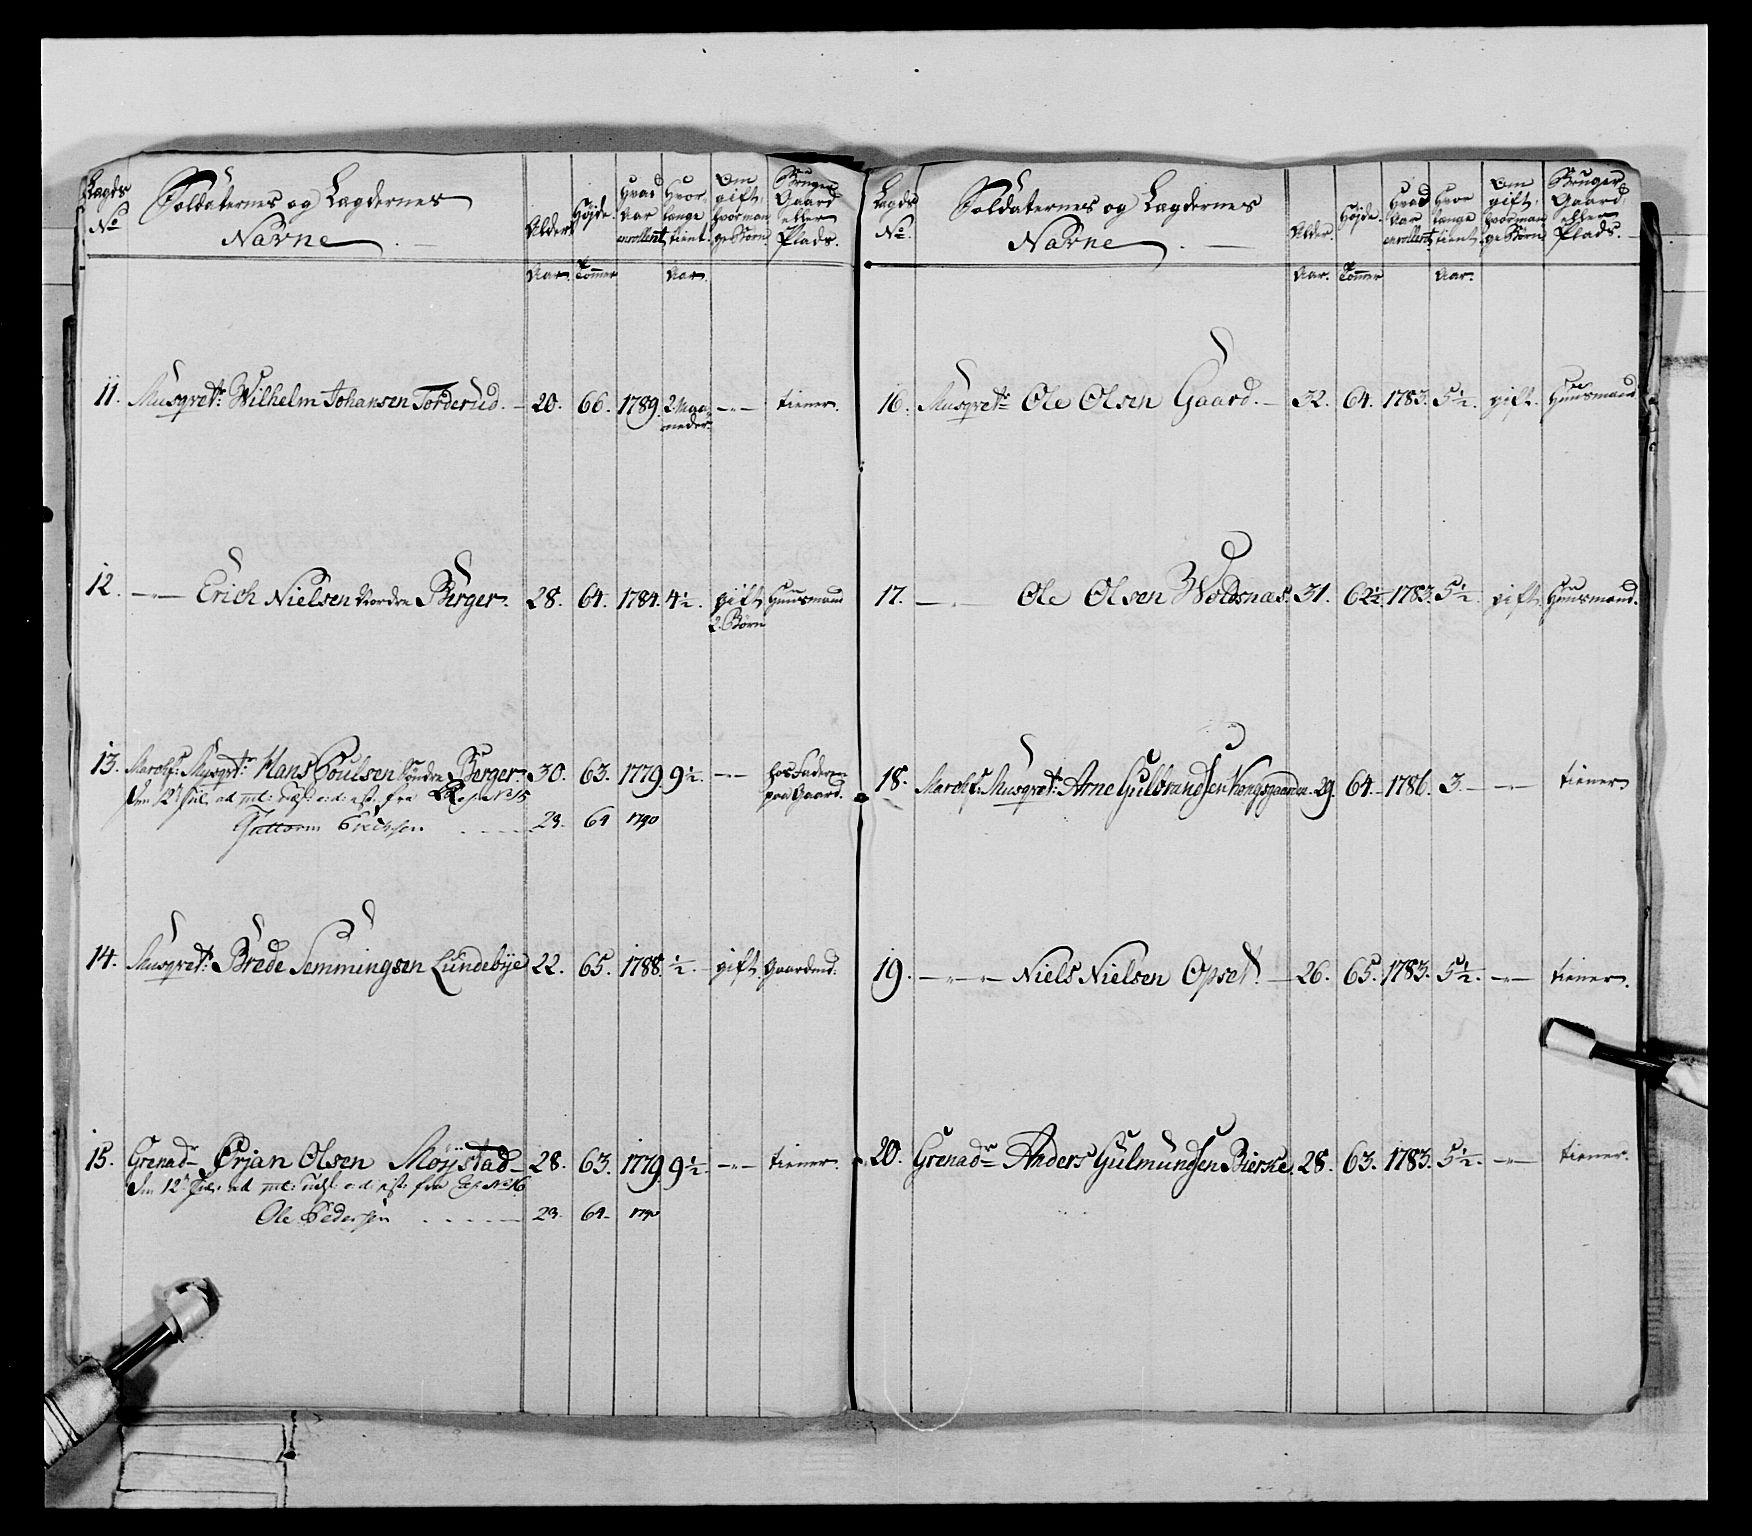 Lagds No
Soldaternes og Lagdernes Navne
Alder. Aar.
Højde. Tommer
Hvad Aar enrollert
Hvor lange tient. Aar.
Om gift, hvor mange Børn
Bruger Gaard eller Plads.
11. Musqret: Wilhelm Johansen Torderud. 20. 66. 1789. 2 Maaneder. -„- tiener.
12. -„- Erich Nielsen Nordre Berger. 28. 64. 1784. 4½. gift 2. Børn Huusmand
13. Musqrt: Hans Poulsen Söndre Berger. 30. 63. 1779. 9½. -„- hos Faderen paa Gaard.
Den 12te Jul. fra No 15
Guttorm Erichsen 23. 64 1790
14. Musqret: Brede Semmingsen Lundebye 22. 65. 1788. ½. gift. Gaardmd:
15. Grenadr Ørjan Olsen Møystad 28. 63. 1779. 9½. -„- tiener.
Den 12te Jul. fra No 16
Ole Pedersen 23. 64. 1790
Lagds No.
Soldaternes og Lagdernes Navne
Alder. Aar.
Højde. Tommer
Hvad Aar enrollert
Hvor lange tient Aar.
Om gift, hvor mange Børn
Bruger Gaard, eller Plads.
16. Musqretr Ole Olsen Gaard. 32. 64. 1783. 5½. gift. Huusmand
17. -„- Ole Olsen Woldsnæs. 31. 62½. 1783. 5½. gift Huusmand.
18. Musqretr: Arne Gulbrandsen Vangsgaarden. 29. 64. 1786. 3. -„- tiener
19. -„- Niels Nielsen Opset. 26. 65. 1783. 5½. -„- tiener.
20. Grenadr Anders Gulmundsen Bierke. 28. 63. 1783. 5½. -„- tiener.